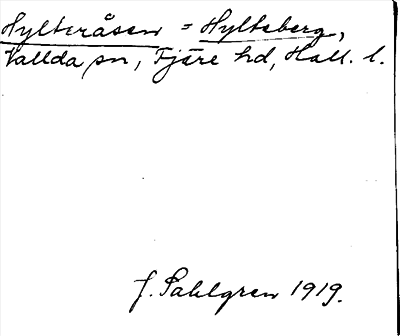 Hylteråsen = Hylteberg,
Vallda sn, Fjäre hd, Hall. l.
J. Sahlgren 1919.